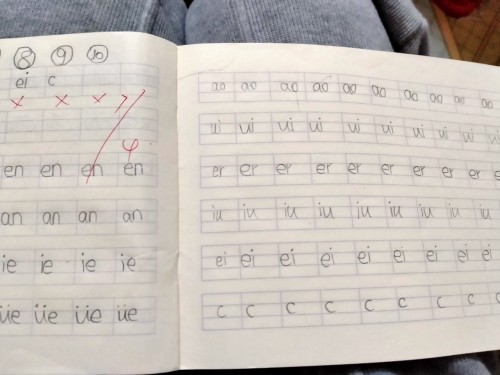 ⑧ ⑨ ⑩
ei c
× × ×
en en en en
an an an an
ie ie ie ie
üe üe üe üe
ao ao ao ao ao ao ao ao ao ao
ui ui ui ui ui ui ui ui ui ui
er er er er er er er er er e
iu iu iu iu iu iu iu iu iu
ei ei ei ei ei ei ei ei ei
c c c c c c c c c